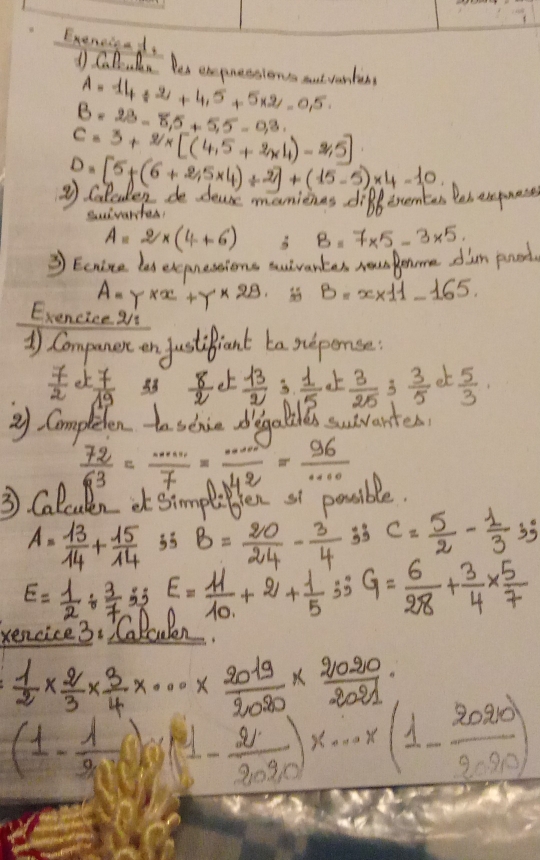 Exercice 1:
1) Calculer les expressions suivantes:
A = 14 ÷ 2 + 4,5 + 5×2 - 0,5.
B = 23 - 8,5 + 5,5 - 0,3.
C = 3 + 2×[(4,5 + 2×4) - 2,5]
D = [5+(6 + 2,5×4) ÷ 2] + (15 - 5)×4 - 10.
2) Calculer de deux manières différentes les express
suivantes:
A = 2×(4+6) ; B = 7×5 - 3×5.
3) Ecrire les expressions suivantes sous forme d'un produ
A = y×x + y×23. ;; B = x×11 - 165.
Exercice 2:
1) Comparer en justifiant ta réponse:
7/2 et 7/19 ;; 8/2 et 13/2 ; 1/5 et 3/25 ; 3/5 et 5/3.
2) Compléter la série d'égalités suivantes:
72/63 = ....../7 = ...../42 = 96/....
3) Calculer et Simplifier si possible.
A = 13/14 + 15/14 ;; B = 20/24 - 3/4 ;; C = 5/2 - 1/3 ;;
E = 1/2 ÷ 3/7 ;; E = 11/10 + 2 + 1/5 ;; G = 6/28 + 3/4 × 5/7
xercice 3: Calculer.
= 1/2 × 2/3 × 3/4 × ... × 2019/2020 × 2020/2021.
(1 - 1/2 ) × (1 - 2/2020) × ... × (1 - 2020/2020)